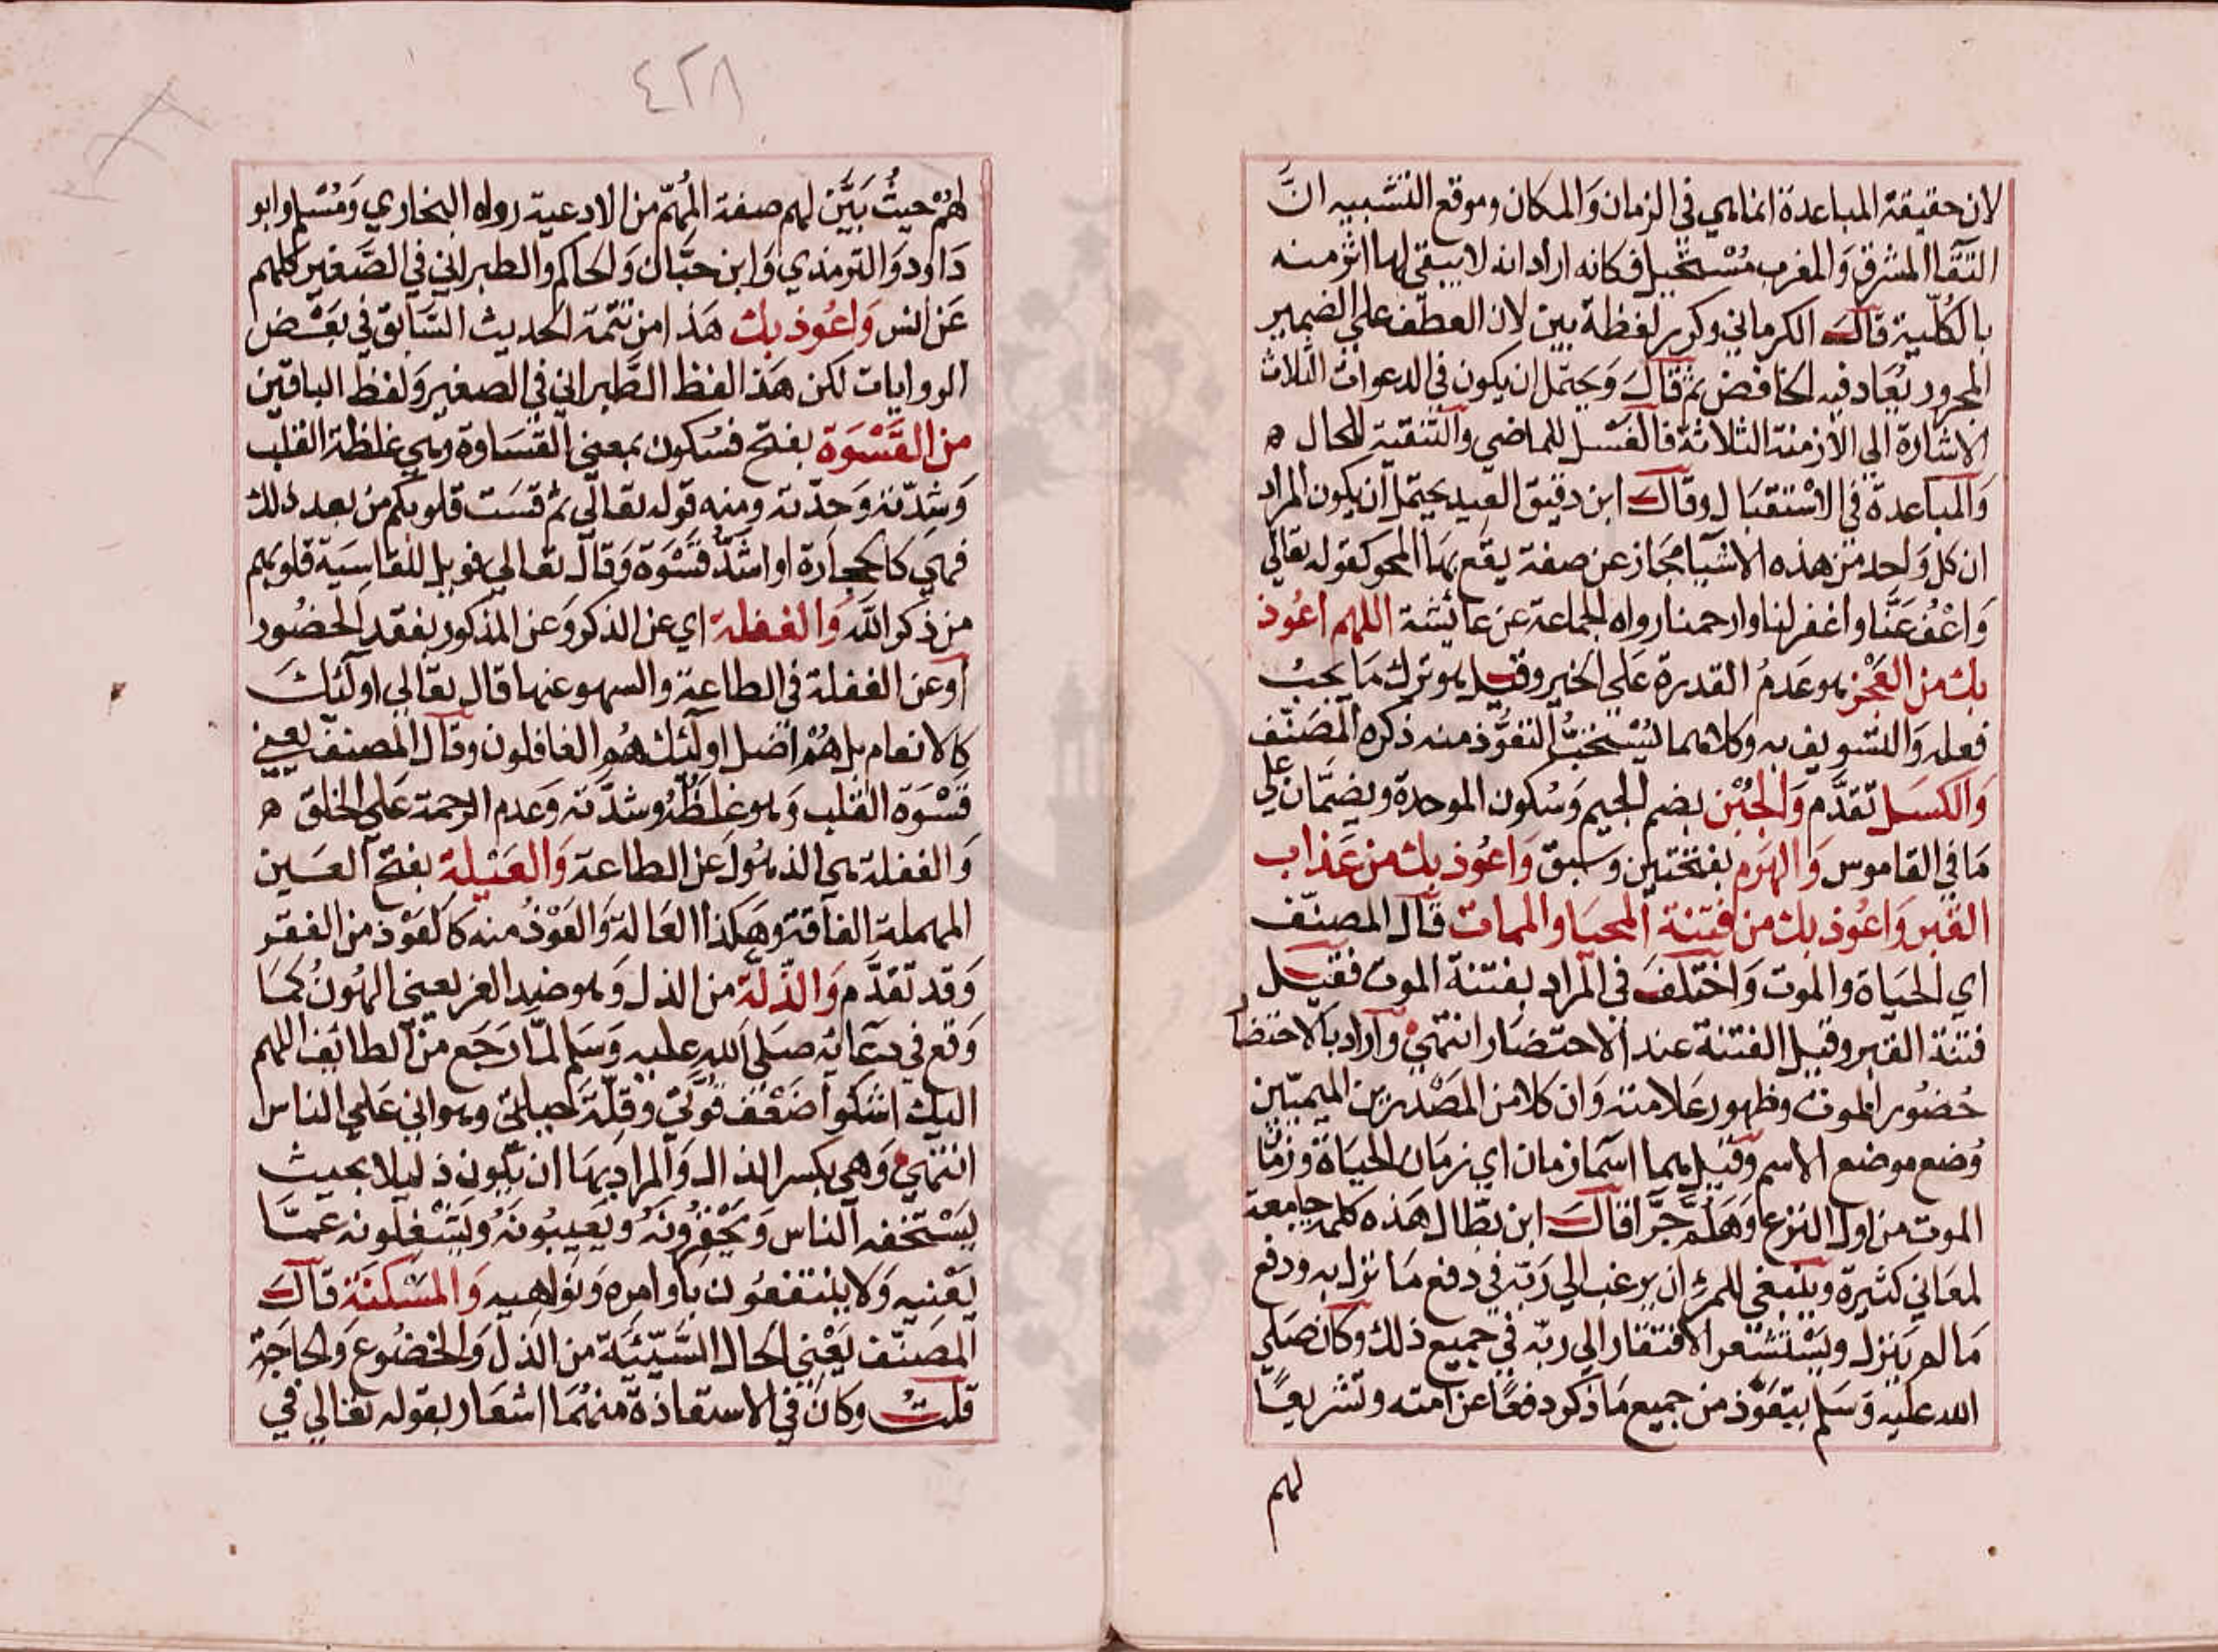 لان حقيقة المباعدة انما هي في الزمان وَالمكان وموقع التشبيه انَّ
التقَآ المشرق وَالمغرب مُسْتحيل فكانه اراد انه لا يبقي لها اثر منه
بالكُلّية قالَ الكرماني وكرر لفظة بين لان العطف علي الضمير
المجرور يُعَاد فيه الخافض ثم قَالَ وَيحتمل ان يكون في الدعوات الثلاث
الاشارة الي الازمنة الثلاثة فالغسْل للماضي والتنقية للحال ه
وَالمباعدة في الاسْتقبَال وقالَ ابن دقيق العيد يحتمل ان يكون المراد
ان كل وَاحد من هذه الاشيآ مجاز عن صفة يقع بهَا المحو كقوله تعالي
وَاعْفُ عَنَّا واغفر لنا وارحمنا رواه الجماعة عن عائشة اللهم اعُوذ
بك من العَجْز هو عَدمُ القدرة عَلي الخير وقيل هو ترك مَا يجبُ
فعله وَالتسويف به وكلاهما يُسْتحبُّ التعَوُّذ منه ذكره المصَنّف
وَالكسَل تقدَّم وَالجُبْن بضم الجيم وَسُكون الموحدة ويضمَّان علي
مَا في القاموس وَالهَرَم بفتحتين وسَبق وَاعُوذ بك من عَذاب
القبر وَاعُوذ بك من فتنة المحيَا والممات قال المصنّف
اي الحيَاة والموت وَاختلَفَ في المراد بفتنة الموت فقيل
فتنة القبر وقيل الفتنة عند الاحتضَار انتهيٰ وارَاد بالاحتضا
حُضوُر الموت وظهور عَلامته وَان كلا من المصْدرين الميميّين
وُضع موضع الاسم وقيل هما اسما زمان اي زمان الحيَاة وزمَا
الموت من اول النزع وَهَلمَّ جَرَّا قالَ ابن بطَّال هَذه كلمة جامعة
لمعَاني كثيرة وينبغي للمرء ان يرغب الي رَبّه في دفع مَا نزل به ودفع
مَا لم يَنزل ويَسْتشعر الافتقار الي ربّه في جميع ذلك وكان صَلي
الله عليه وَسَلم يتعَوَّذ من جميع مَا ذكر دفعًا عن امته وتشريعًا
لهم
٤٢٨
لهُمْ حيثُ بَيَّن لهم صفة المُهِمّ من الادعية رواه البخاري وَمُسْلم وابو
دَاود وَالترمذي وَابن حبَّان وَالحاكم والطبراني في الصَّغير كلهم
عَن انس وَاعُوذ بك هَذا من تتمَّة الحديث السَّابق في بَعْض
الروايات لكن هَذا لفظ الطَّبراني في الصغير وَلفظ الباقين
من القَسْوَة بفتح فسُكون بمعني القسَاوة وهي غلظة القلب
وَشدّته وَحدّته ومنه قوله تعالي ثم قسَت قلوبكم من بعد ذلك
فهي كالحجارَة او اشدُّ قسْوَة وَقال تعالي فويل للقاسيَة قلوبهم
من ذكر الله وَالغفلة اي عن الذكر وَعن المذكور بفقد الحضُور
اوعن الغفلة في الطاعة والسهو عنها قال تعالي اولَئكَ
كالانعام بل هُمْ اضل اولئك هُم الغافلون وقال المصنف يعني
قسْوَة القلب وَهو غلظهُ وشدَّته وَعدم الرحمة عَلي الخلق ه
وَالغفلة هي الذهُولَ عن الطاعة وَالعَيْلة بفتح العَين
المهملة الفاقة وهَكذا العَالة وَالعَوْذ منه كالعَوْذ من الفقر
وَقد تقدَّم وَالذّلَّة من الذل وَهو ضد العز يعني الهُونُ كمَا
وَقع في دعَائه صَلي الله عليه وَسَلم لمّا رَجَع من الطائف اللهم
اليك اشكو ضَعْف قوَّتي وقلّة حيلتي وهواني عَلي الناس
انتهيٰ وَهي بكسر الذال وَالمراد بهَا ان يكون ذليلا بحيث
يَسْتخفه الناس وَيحْقرُونهُ ويَعيبُونهُ ويَشْغلونه عمَّا
يَعْنيه وَلا ينتفعُون باوامره وَنوَاهيه وَالمسْكنَة قالَ
المصَنّف يَعْني الحال السَّيّئَة من الذل وَالخضُوع وَالحاجَة
قلتُ وكان في الاستعاذة منهُمَا اشعَار بقوله تعَالي في